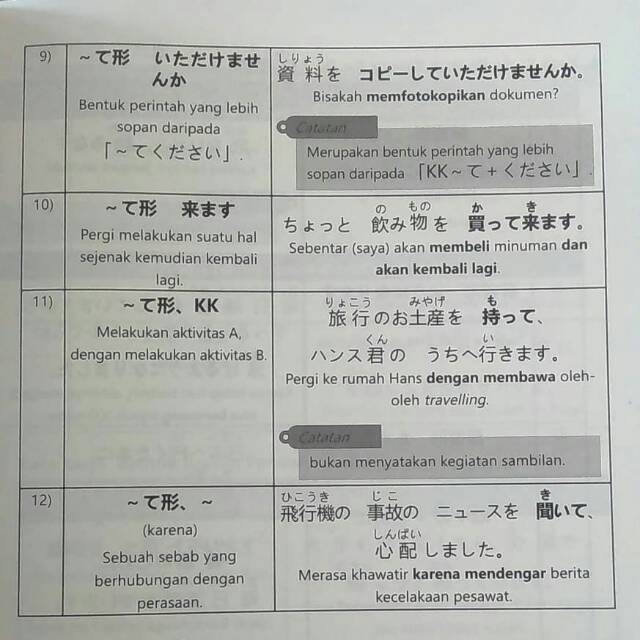 9)
~て形 いただけませ
んか
Bentuk perintah yang lebih
sopan daripada
「~てください」.
しりょう
資料を コピーしていただけませんか。
Bisakah memfotokopikan dokumen?
Catatan
Merupakan bentuk perintah yang lebih
sopan daripada 「KK~て+ください」.
10)
~て形 来ます
Pergi melakukan suatu hal
sejenak kemudian kembali
lagi.
の もの か き
ちょっと 飲み物を 買って来ます。
Sebentar (saya) akan membeli minuman dan
akan kembali lagi.
11)
~て形、KK
Melakukan aktivitas A,
dengan melakukan aktivitas B.
りょこう みやげ も
旅行のお土産を 持って、
くん い
ハンス君の うちへ行きます。
Pergi ke rumah Hans dengan membawa oleh-
oleh travelling.
Catatan
bukan menyatakan kegiatan sambilan.
12)
~て形、~
(karena)
Sebuah sebab yang
berhubungan dengan
perasaan.
ひこうき じこ き
飛行機の 事故の ニュースを 聞いて、
しんぱい
心配しました。
Merasa khawatir karena mendengar berita
kecelakaan pesawat.